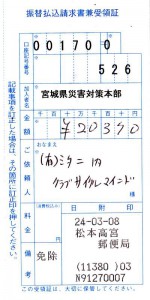 振替払込請求書兼受領証
口座記号番号
00170 0
526
加入者名
宮城県災害対策本部
金額
千 百 十 万 千 百 十 円
¥20390
おなまえ
(有)ミクニ内
クラブサイクルマインド
ご依頼人
料金
免除
備考
日附印
24-03-08
松本高宮
郵便局
(11380) 03
N91270007
記載事項を訂正した場合は、その箇所に訂正印を押してください。
この受領証は、大切に保管してください。